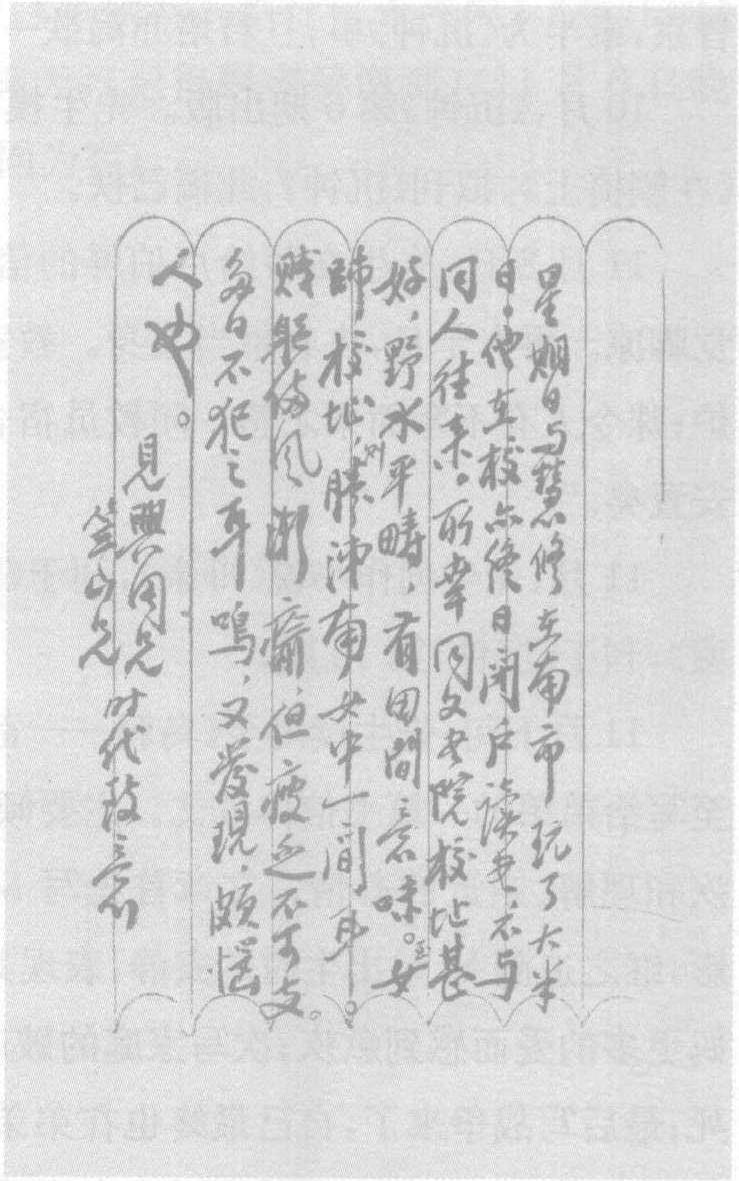 星期日与慧修在南市玩了大半
日。他在校亦终日闭户读书,不与
同人往来。所幸同文书院校址甚
好,野水平畴,有田间意味。至女
师校址,则胜沛南女中一间耳。
贱躯伤风渐癒,但疲乏不可支。
多日不犯之耳鸣,又发现,颇恼
人也。
见兴国兄
笠山兄 时代致意